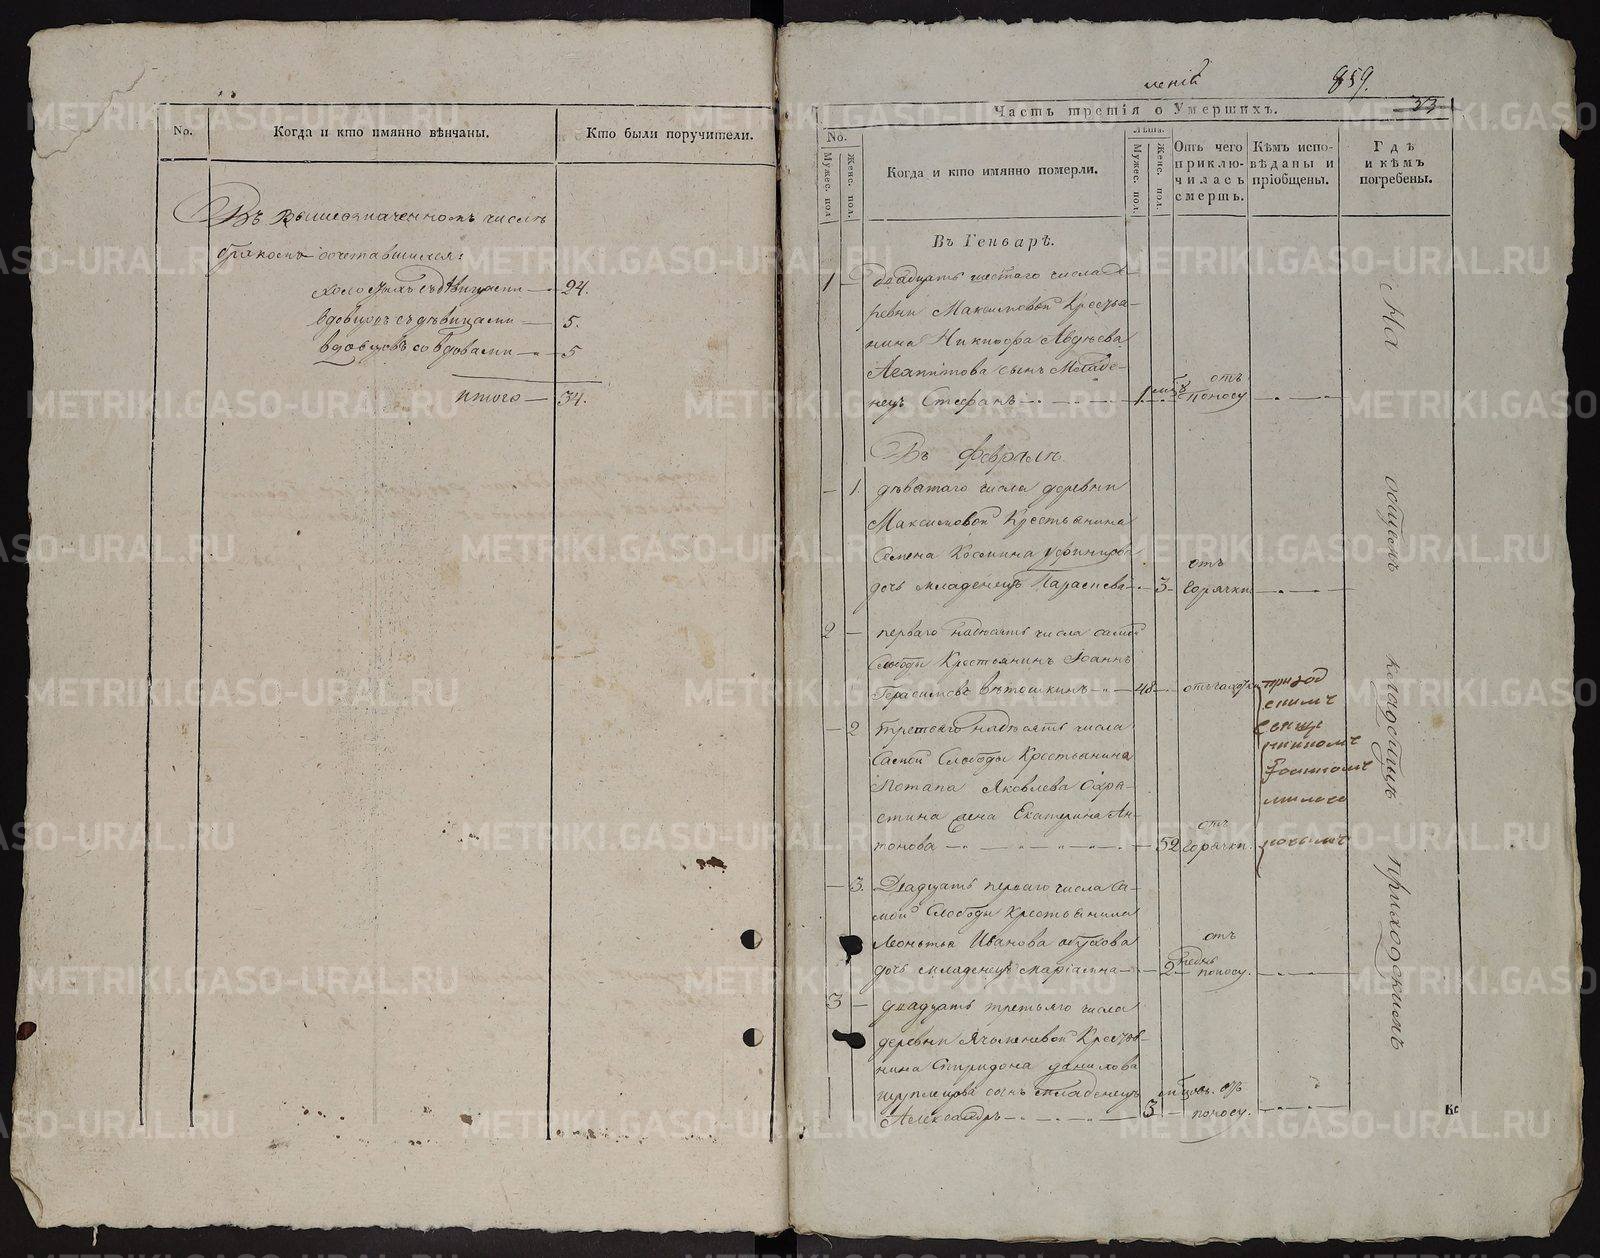 No.
Когда и кто имянно вѣнчаны.
Кто были поручители.
Въ вышеозначенномъ числѣ
бракомъ сочетавшихся:
холостыхъ съ дѣвицами — 24.
вдовцовъ съ дѣвицами — 5.
вдовцовъ со вдовами — 5
итого — 34.
859.
33
Часть третія о Умершихъ.
No.
Мужес. пол
Женс. пол.
Когда и кто имянно померли.
Лѣта.
Мужес. пол.
Женс. пол.
Отъ чего приклю-
чилась
смерть.
Кѣмъ испо-
вѣданы и
пріобщены.
Гдѣ
и кѣмъ
погребены.
Въ Генварѣ.
1 — двадцать шестаго числа де-
ревни Максимовой Крестья-
нина Никифора Авдѣева
Агапитова сынъ Младе-
нецъ Стефанъ 1 отъ поносу
Въ Февралѣ
— 1. девятаго числа деревни
Максимовой Крестьянина
Семена Козмина
дочь младенецъ Параскева — 3 — отъ горячки
2 — перваго надесять числа самой
Слободы Крестьянинъ Іоаннъ
Герасимовъ Вѣтошкинъ — 48 —
— 2 третьяго надесять числа
Самой Слободы Крестьянина
Потапа Яковлева
жена Екатерина Ан-
тонова — 52 отъ горячки.
приход
скимъ
свяще
нникомъ
Іоанномъ
— 3. Двадцать перваго числа са-
мой Слободы Крестьянина
Леонтья Иванова
дочь младенецъ Маріамна — 2 недѣ отъ поносу.
3 — двадцать третьяго числа
деревни Ячменевой Крестья-
нина Спиридона Данилова
сынъ младенецъ
Александръ — 3 — отъ поносу.
На общемъ кладбищѣ приходскимъ
Кс
METRIKI.GASO-URAL.RU